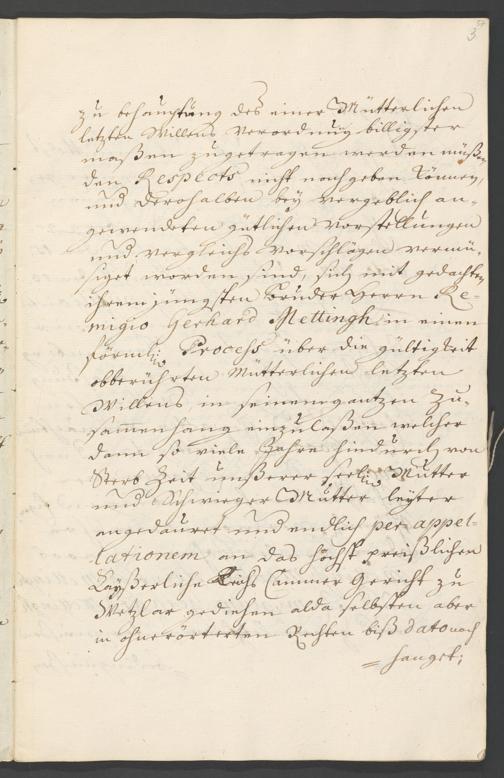 3
zu behauptung des einer Mütterlichen
letzten Willens Verordnung billigster
maßen zugetragen werden müßen
den Respects nicht nachgeben können,
und derohalben bey vergeblich an-
gewendeten gütlichen Vorstellungen
und vergleichs vorschlägen vermü-
siget worden sind, sich mit gedachten
ihrem jüngsten Bruder Herrn Re-
migio Gerhard Mettingh in einen
förml. Process über die gültigkeit
obberührten Mütterlichen letzten
Willens in seinem gantzen Zu-
sammenhang einzulaßen welcher
dann so viele Jahre hindurch von
Sterb Zeit unßerer seel. Mutter
und Schwieger Mutter leyder
angedauret und endlich per appel-
lationem an das höchst preißliche
Kayßerliche Reichs Cammer Gericht zu
Wetzlar gediehen alda selbsten aber
in ohnerörterten Rechten biß dato noch
hanget;